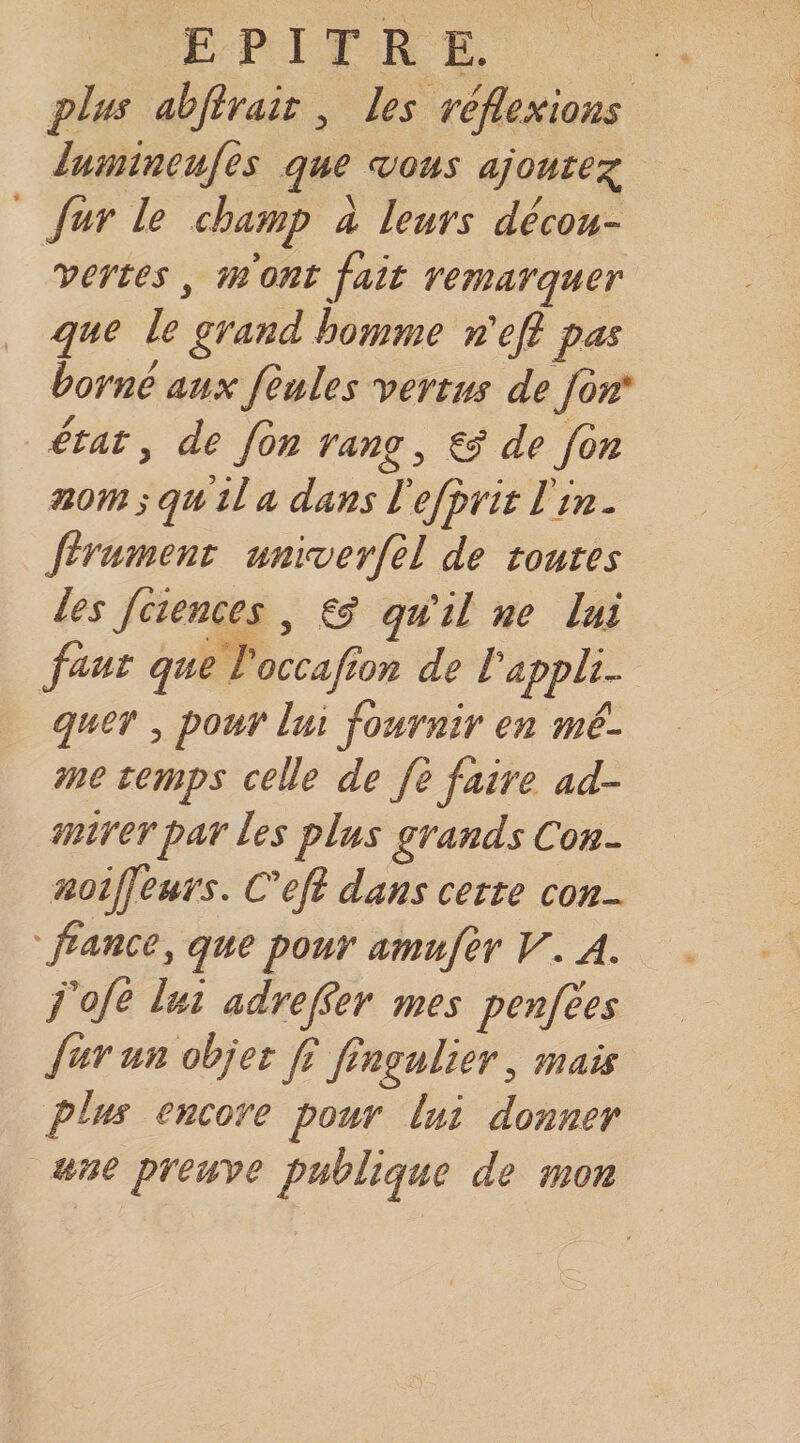 EPITRE.
plus abſtrait, les réflexions
lumineuſes que vous ajoutez
ſur le champ à leurs décou-
vertes, m'ont fait remarquer
que le grand homme n'eſt pas
borné aux ſeules vertus de ſon
état, de ſon rang, & de ſon
nom; qu'il a dans l'eſprit l'in-
ſtrument univerſel de toutes
les ſciences, & qu'il ne lui
faut que l'occaſion de l'appli-
quer, pour lui fournir en mê-
me temps celle de ſe faire ad-
mirer par les plus grands Con-
noiſſeurs. C'eſt dans cette con-
fiance, que pour amuſer V. A.
j'oſe lui adreſſer mes penſées
ſur un objet ſi ſingulier, mais
plus encore pour lui donner
une preuve publique de mon